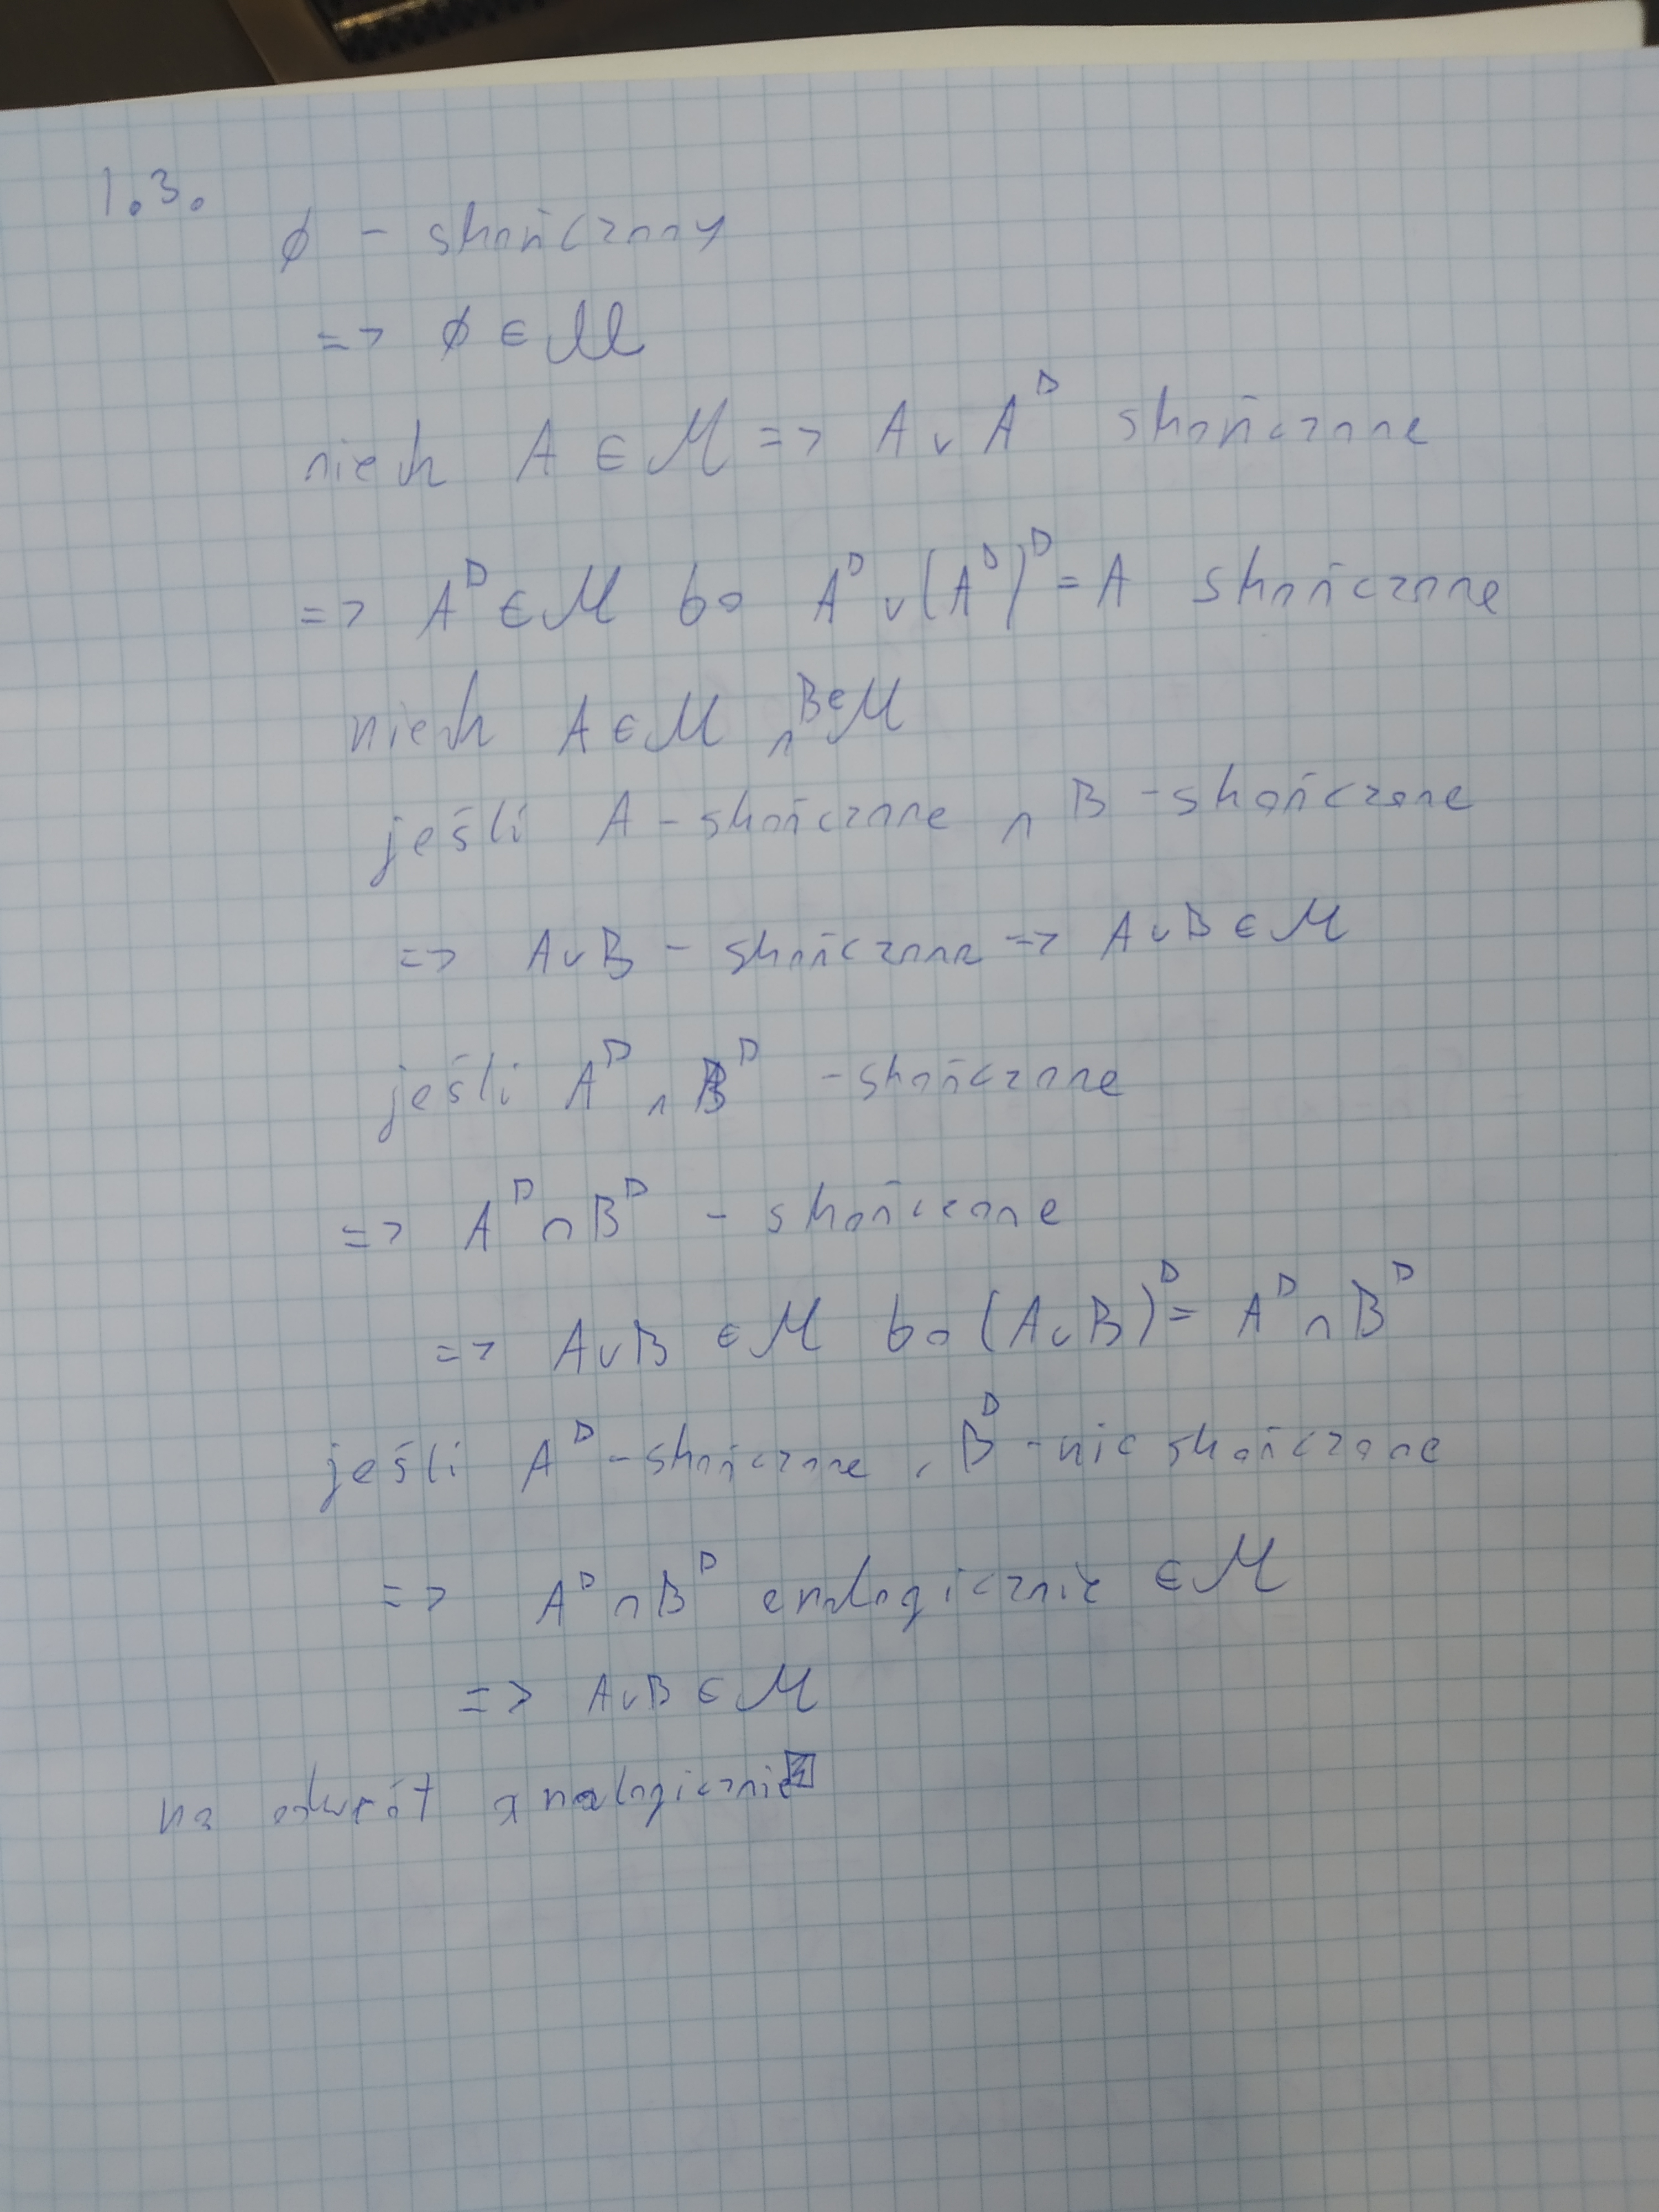 1.3.
∅ - skończony
=> ∅ ∈ M
niech A ∈ M => A ∨ A^D skończone
=> A^D ∈ M bo A^D ∨ (A^D)^D = A skończone
niech A ∈ M ∧ B ∈ M
jeśli A - skończone ∧ B - skończone
=> A∪B - skończone => A∪B ∈ M
jeśli A^D ∧ B^D - skończone
=> A^D ∩ B^D - skończone
=> A∪B ∈ M bo (A∪B)^D = A^D ∩ B^D
jeśli A^D - skończone, B^D - nie skończone
=> A^D ∩ B^D analogicznie ∈ M
=> A∪B ∈ M
na odwrót analogicznie